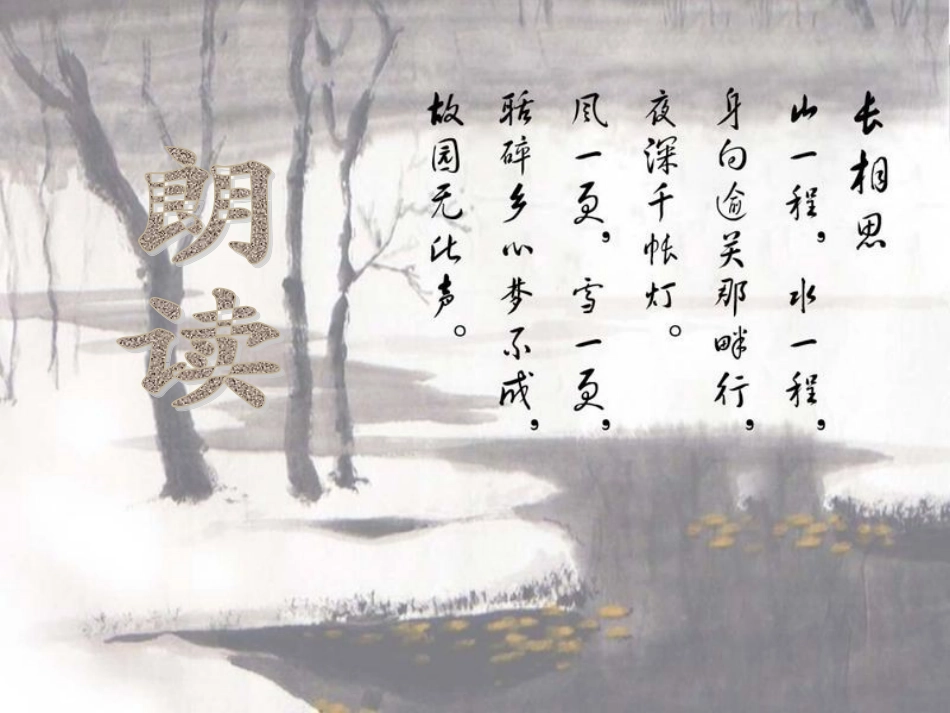 长相思
山一程，水一程，
身向逾关那畔行，
夜深千帐灯。
风一更，雪一更，
聒碎乡心梦不成，
故园无此声。
朗读